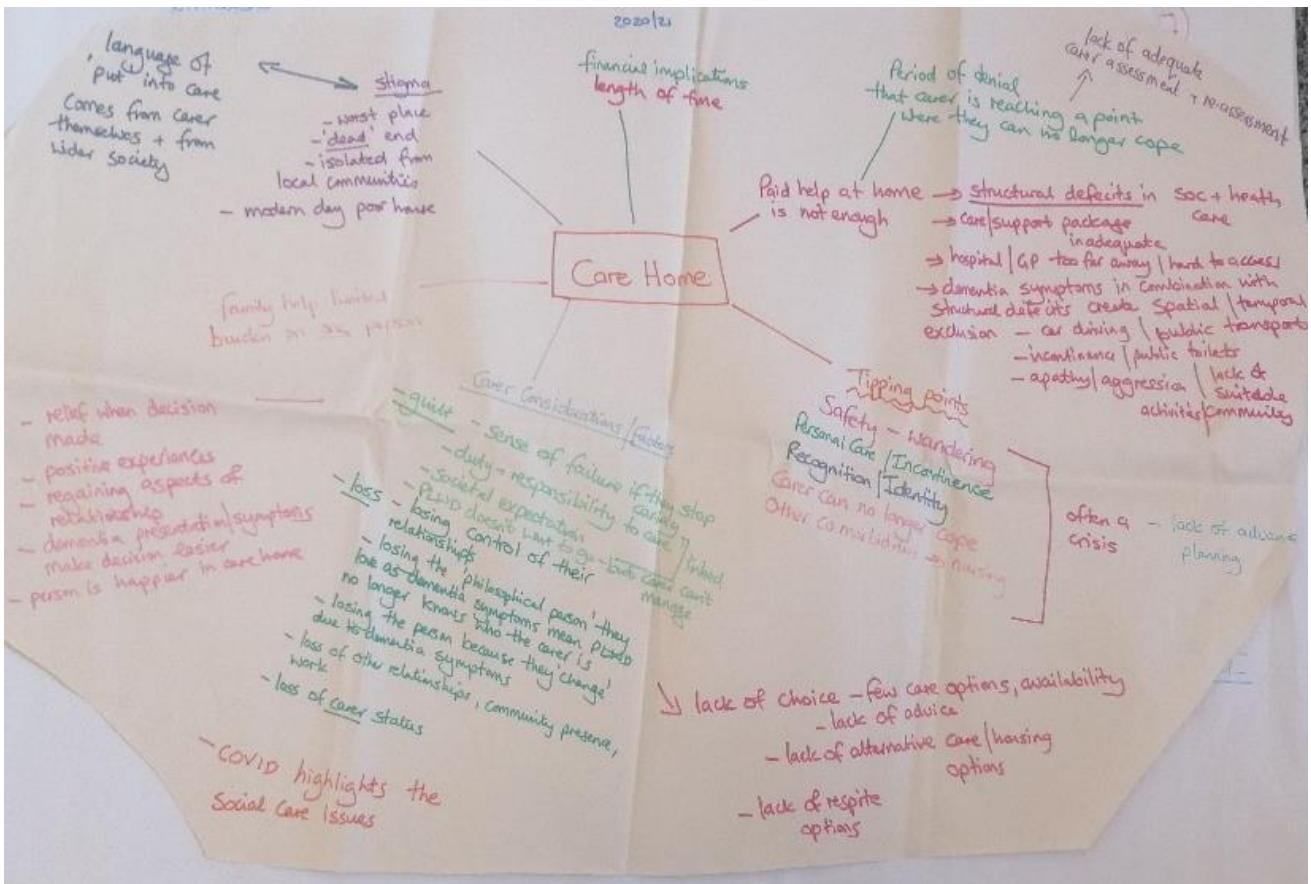 2020/21
language of
'put' into care
Comes from carer
themselves + from
wider society
stigma
- worst place
- 'dead' end
- isolated from
local communities
- modern day poor house
financial implications
length of time
Period of denial
that carer is reaching a point
were they can no longer cope
lack of adequate
carer assessment + re-assessment
Paid help at home
is not enough
→ structural defecits in soc + health
care
→ care/support package
inadequate
→ hospital/GP too far away/hard to access
→ dementia symptoms in combination with
structural defecits create spatial/temporal
exclusion - car driving/public transport
- incontinence/public toilets
- apathy/aggression/lack of
suitable
activities/community
Care Home
family help limited
burden on one person
- relief when decision
made
- positive experiences
- regaining aspects of
relationship
- dementia presentation/symptoms
make decision easier
- person is happier in care home
Carer Considerations/Factors
- guilt - sense of failure if they stop
caring
- duty + responsibility to care
- societal expectation
linked
- PLWD doesn't want to go - but carer can't
manage
- loss - losing control of their
relationships
- losing the 'philosophical person' they
love as dementia symptoms mean PLWD
no longer knows who the carer is
- losing the person because they 'change'
due to dementia symptoms
- loss of other relationships, community presence,
work
- loss of carer status
Tipping points
Safety - wandering
Personal Care/Incontinence
Recognition/Identity
Carer can no longer cope
Other co morbidities → nursing
often a
crisis
- lack of advance
planning
lack of choice - few care options, availability
- lack of advice
- lack of alternative care/housing
options
- lack of respite
options
- COVID highlights the
Social Care Issues